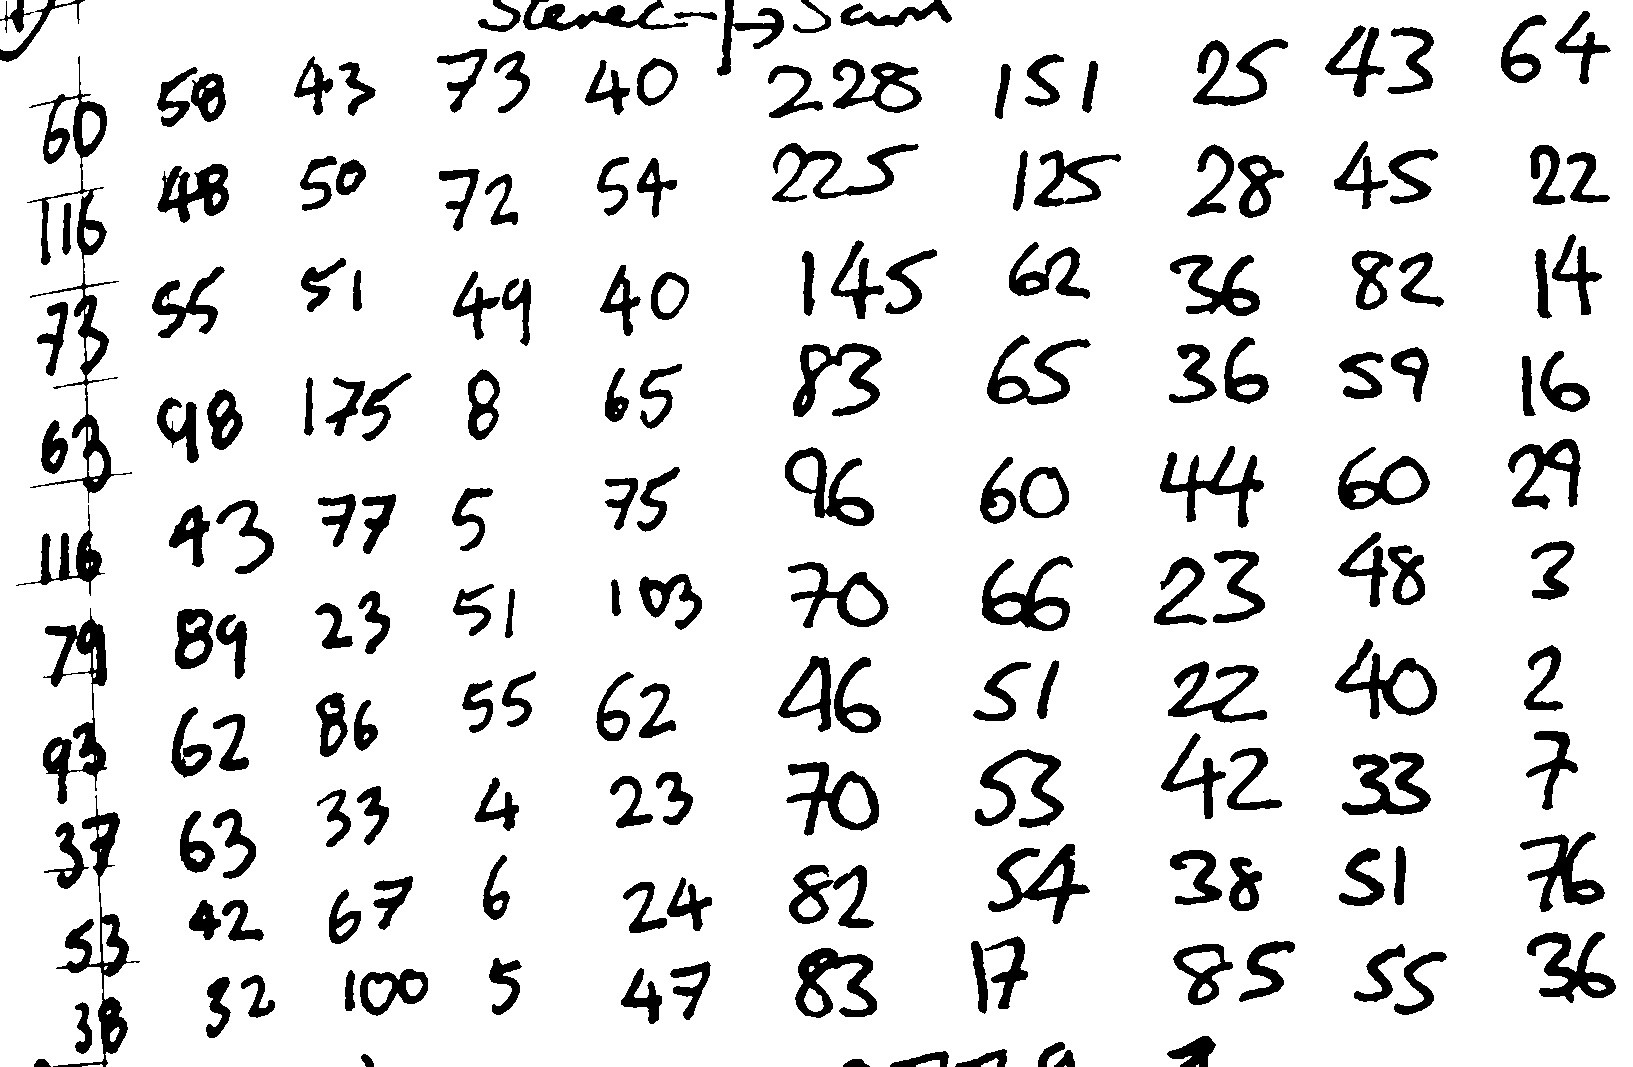 60 58 43 73 40 228 151 25 43 64
116 48 50 72 54 225 125 28 45 22
73 55 51 49 40 145 62 36 82 14
63 98 175 8 65 83 65 36 59 16
116 43 77 5 75 96 60 44 60 29
79 89 23 51 103 70 66 23 48 3
93 62 86 55 62 46 51 22 40 2
37 63 33 4 23 70 53 42 33 7
53 42 67 6 24 82 54 38 51 76
38 32 100 5 47 83 17 85 55 36